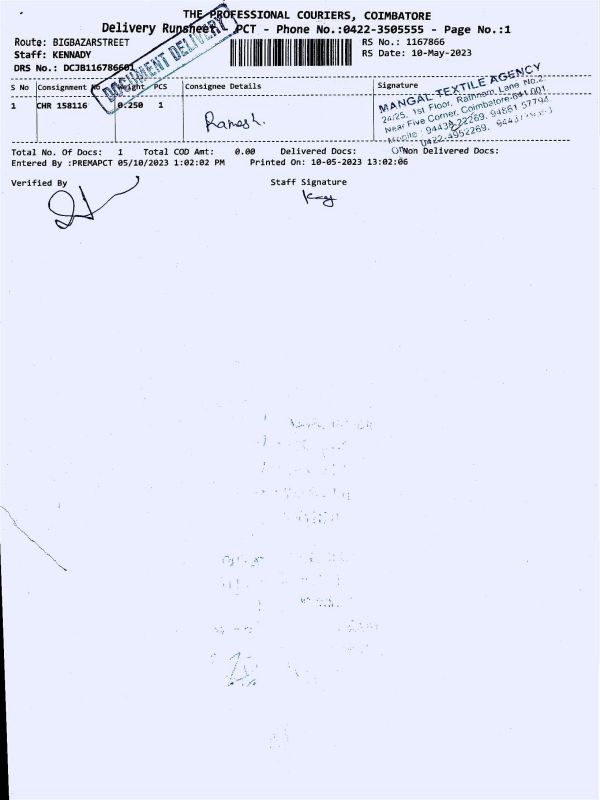 THE PROFESSIONAL COURIERS, COIMBATORE
Delivery Runsheet PCT - Phone No.:0422-3505555 - Page No.:1
Route: BIGBAZARSTREET
RS No.: 1167866
Staff: KENNADY
RS Date: 10-May-2023
DRS No.: DCJB116786601
DOCUMENT DELIVERY
S No Consignment No Weight PCS Consignee Details Signature
1 CHR 158116 0.250 1
Ramesh.
MANGAL TEXTILE AGENCY
24/25, 1st Floor, Rathnam Lane No.2
Near Five Corner, Coimbatore-641 001.
Mobile : 94439 22269, 94861 57794
0422-4952269,
Total No. Of Docs: 1 Total COD Amt: 0.00 Delivered Docs: Non Delivered Docs:
Entered By :PREMAPCT 05/10/2023 1:02:02 PM Printed On: 10-05-2023 13:02:06
Verified By Staff Signature